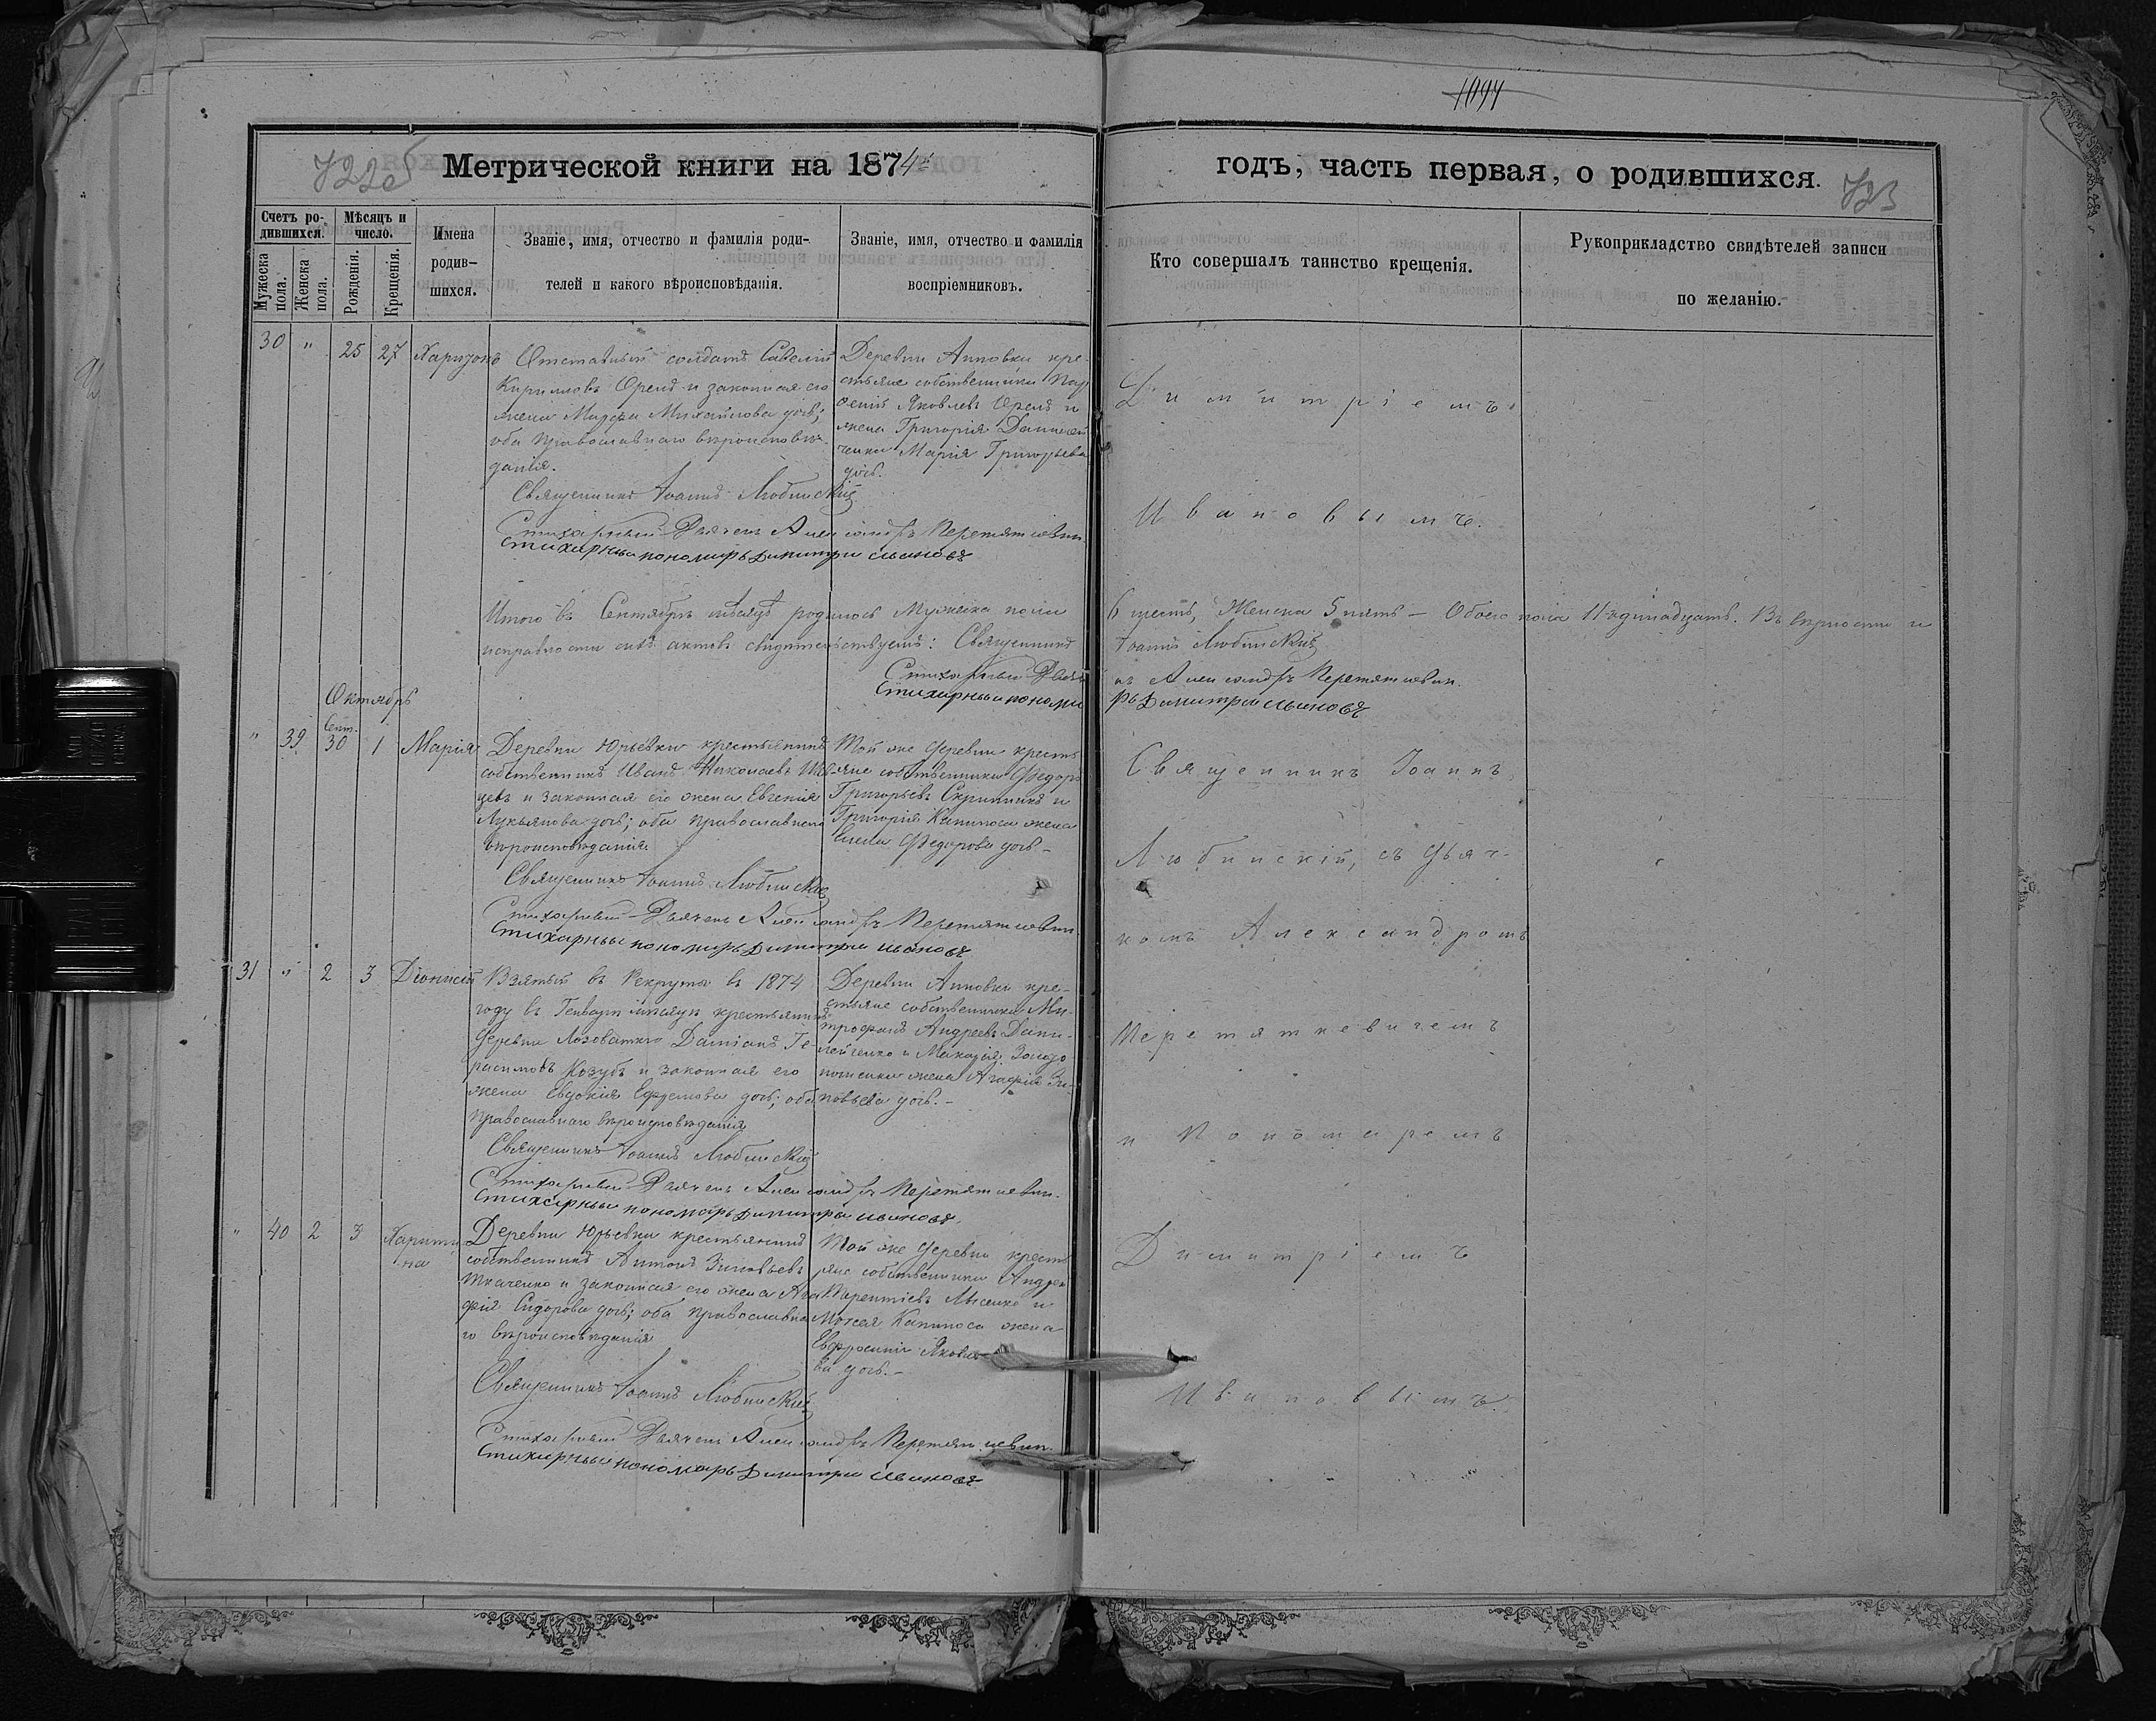 1094
722об
Метрической книги на 1874
годъ, часть первая, о родившихся.
723
Счетъ ро-
дившихся.
Мужеска пола.
Женска пола.
Мѣсяцъ и
число.
Рожденія.
Крещенія.
Имена
родив-
шихся.
Званіе, имя, отчество и фамилія роди-
телей и какого вѣроисповѣданія.
Званіе, имя, отчество и фамилія
воспріемниковъ.
Кто совершалъ таинство крещенія.
Рукоприкладство свидѣтелей записи
по желанію.
30 " 25 27 Харитонъ
Отставный солдатъ Савелій
Кирилловъ Орелъ и законная его
жена Михайлова дочь;
оба православнаго вѣроисповѣ-
данія.
Деревни Анновки кре-
стьяне собственники Пар
ѳеній Яковлевъ Орелъ и
жена Григорія Данилей
ченка Марія Григорьева
дочь.
Священникъ Іоаннъ Любинскій
Стихарный Дьячекъ Александръ Перетяткевич.
Стихарный пономарь Димитрій Ивановъ
Димитріемъ
Ивановымъ.
Итого въ Сентябрѣ мѣсяцѣ родилось Мужеска пола
6 шесть, Женска 5 пять – Обоего пола 11 одинадцать. Въ вѣрности и
исправности сихъ актовъ свидѣтельствуемъ: Священникъ
Іоаннъ Любинскій
Стихарный Дьячекъ Александръ Перетяткевич.
Стихарный пономарь Димитрій Ивановъ
Октябрь
" 39 Сент. 30 1 Марія
Деревни Юрьевки крестьянинъ
собственникъ Иванъ Николаевъ Шев-
цевъ и законная его жена Евгенія
Лукьянова дочь; оба православнаго
вѣроисповѣданія
Той же деревни кресть
яне собственники Ѳедоръ
Григорьевъ Скрипникъ и
Григорія Капиноса жена
Ѳедорова дочь –
Священникъ Іоаннъ Любинскій
Стихарный Дьячекъ Александръ Перетяткевич.
Стихарный пономарь Димитрій Ивановъ
Священникъ Іоаннъ
Любинскій, съ Дьяч-
комъ Александромъ
31 " 2 3 Діонисій
Взятый въ Рекруты въ 1874
году въ Генварѣ мѣсяцѣ крестьянинъ
деревни Лозоватки Даміанъ Ге-
расимовъ Козубъ и законная его
жена Евдокія Ефремова дочь; оба
православнаго вѣроисповѣданія
Деревни Анновки кре-
стьяне собственники Ми-
трофанъ Андреевъ Дани-
лейченко и Макарія Золото
ноженка жена Агафія Зи-
новьева дочь. –
Священникъ Іоаннъ Любинскій
Стихарный Дьячекъ Александръ Перетяткевич.
Стихарный пономарь Димитрій Ивановъ
Перетяткевичемъ
и Пономаремъ
" 40 2 3 Харити-
на
Деревни Юрьевки крестьянинъ
собственникъ Антонъ Зиновьевъ
Ткаченко и законная его жена Ага
фія Сидорова дочь; оба православна
го вѣроисповѣданія
Той же деревни кресть
яне собственники Андрей
Терентіевъ Лысенко и
Моисея Капиноса жена
Евфросинія Яковле
ва дочь. –
Священникъ Іоаннъ Любинскій
Стихарный Дьячекъ Александръ Перетяткевич.
Стихарный пономарь Димитрій Ивановъ
Димитріемъ
Ивановымъ.